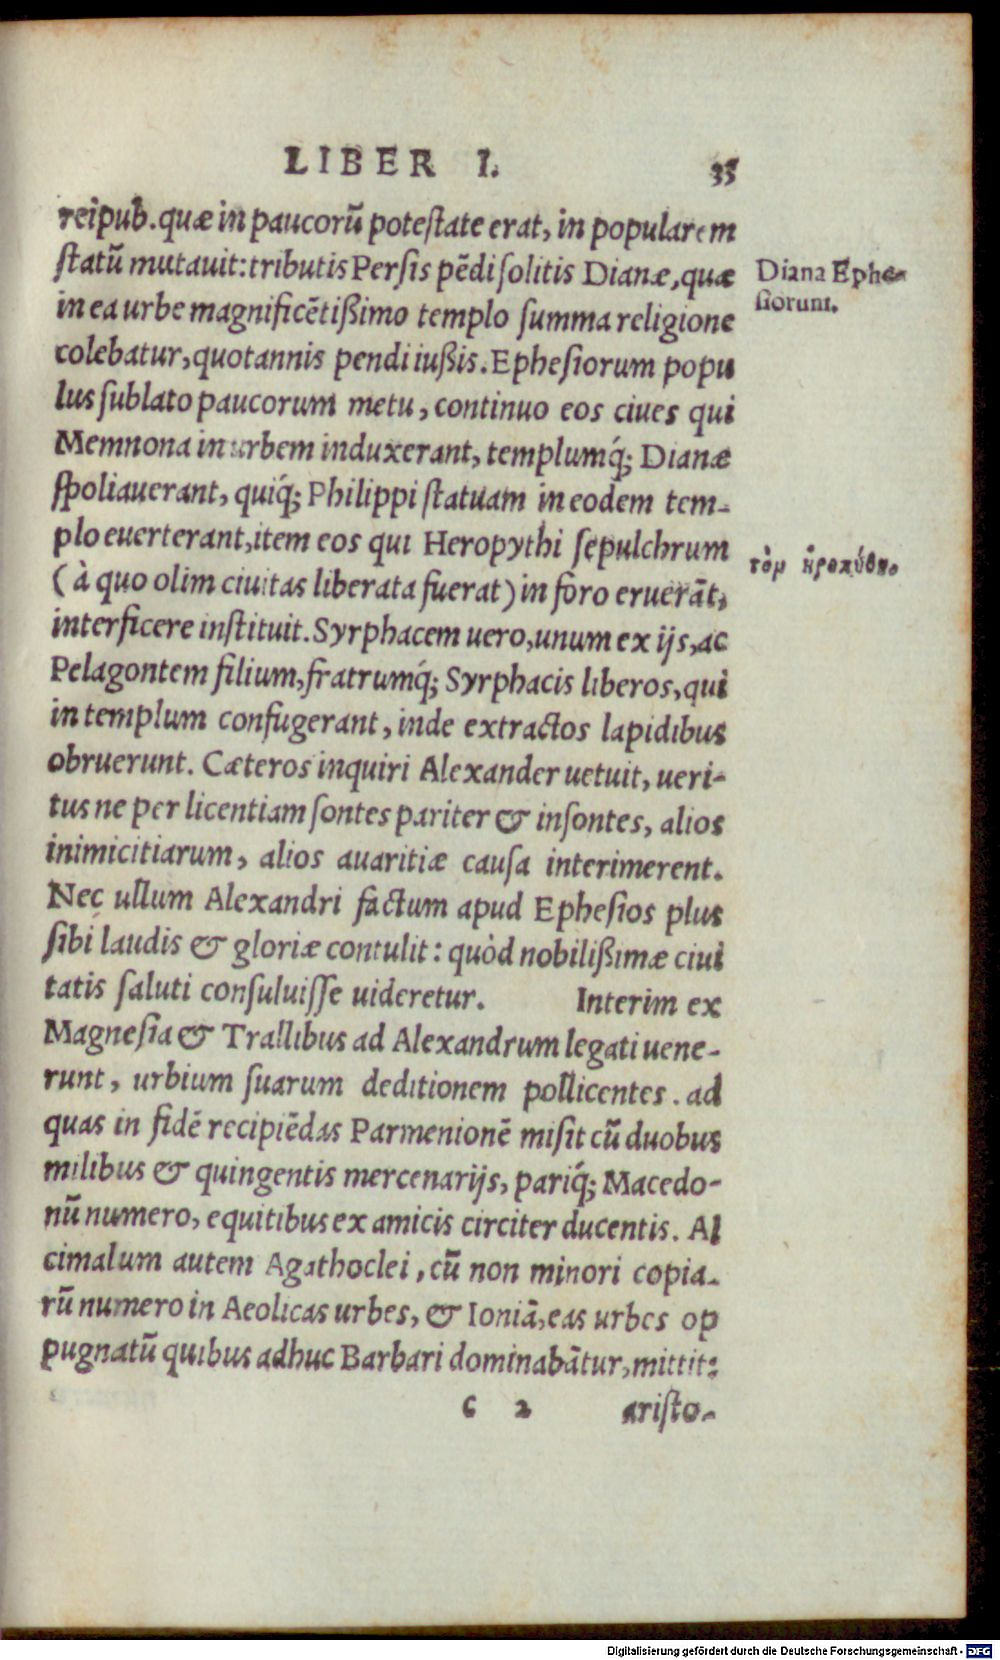 LIBER I. 35
reipub. quæ in paucorũ potestate erat, in popularem
statũ mutauit: tributis Persis pẽdi solitis Dianæ, quæ
Diana Ephe-
siorum.
in ea urbe magnificẽtißimo templo summa religione
colebatur, quotannis pendi iußis. Ephesiorum popu
lus sublato paucorum metu, continuo eos ciues qui
Memnona in urbem induxerant, templumq́; Dianæ
spoliauerant, quiq́; Philippi statuam in eodem tem-
plo euerterant, item eos qui Heropythi sepulchrum
τὸμ ἡροπύθου.
(à quo olim ciuitas liberata fuerat) in foro eruerãt,
interficere instituit. Syrphacem uero, unum ex ijs, ac
Pelagontem filium, fratrumq́; Syrphacis liberos, qui
in templum confugerant, inde extractos lapidibus
obruerunt. Cæteros inquiri Alexander uetuit, ueri-
tus ne per licentiam sontes pariter & insontes, alios
inimicitiarum, alios auaritiæ causa interimerent.
Nec ullum Alexandri factum apud Ephesios plus
sibi laudis & gloriæ contulit: quòd nobilißimæ ciui
tatis saluti consuluisse uideretur. Interim ex
Magnesia & Trallibus ad Alexandrum legati uene-
runt, urbium suarum deditionem pollicentes. ad
quas in fidẽ recipiẽdas Parmenionẽ misit cũ duobus
milibus & quingentis mercenarijs, pariq́; Macedo-
nũ numero, equitibus ex amicis circiter ducentis. Al
cimalum autem Agathoclei, cũ non minori copia-
rũ numero in Aeolicas urbes, & Ioniã, eas urbes op
pugnatũ quibus adhuc Barbari dominabãtur, mittit:
c 2 aristo-
Digitalisierung gefördert durch die Deutsche Forschungsgemeinschaft - DFG